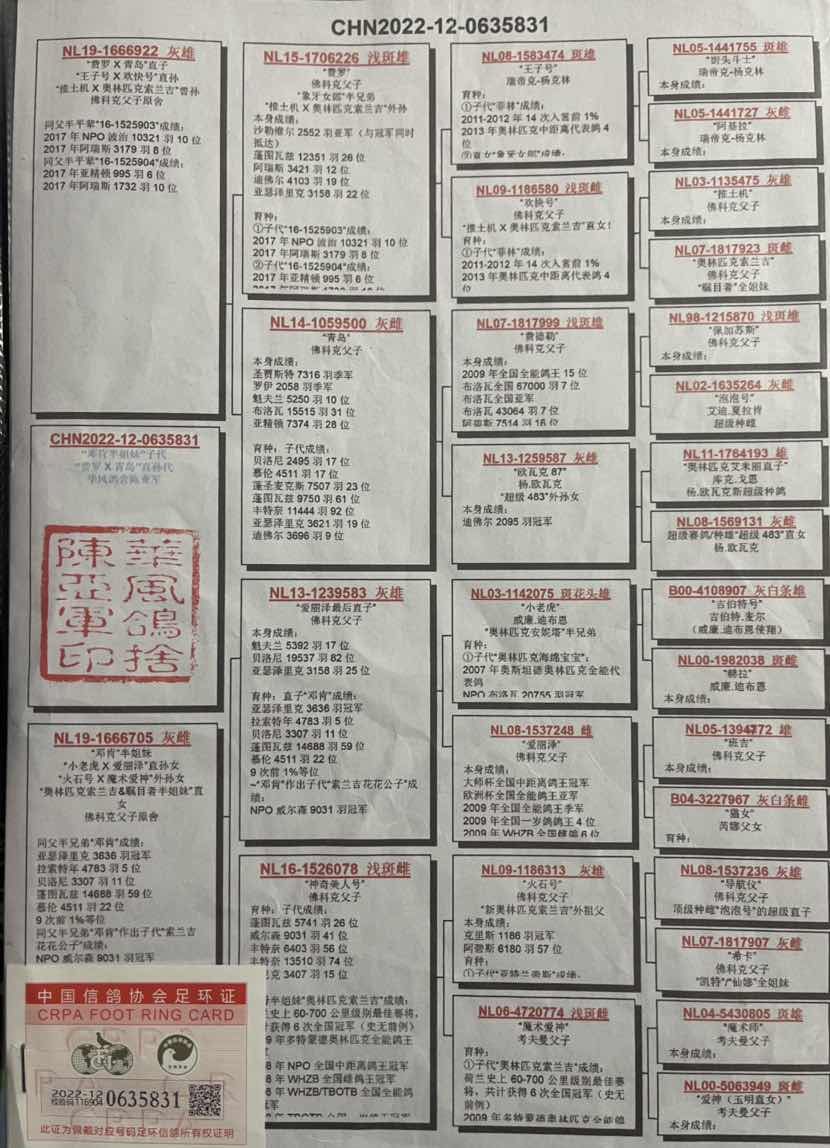 CHN2022-12-0635831
NL19-1666922 灰雄
"费罗 X 青岛"直子
"王子号 X 欢快号"直孙
"推土机 X 奥林匹克索兰吉"曾孙
佛科克父子原舍
同父半平辈"16-1525903"成绩：
2017 年 NPO 波治 10321 羽 10 位
2017 年阿瑞斯 3179 羽 8 位
同父半平辈"16-1525904"成绩：
2017 年亚精顿 995 羽 6 位
2017 年阿瑞斯 1732 羽 10 位
CHN2022-12-0635831
"邓肯半姐妹"子代
"费罗 X 青岛"直孙代
华风鸽舍陈亚军
華風鴿舍
陳亞軍印
NL19-1666705 灰雌
"邓肯"半姐妹
"小老虎 X 爱丽泽"直孙女
"火石号 X 魔术爱神"外孙女
"奥林匹克索兰吉&瞩目者半姐妹"直
女
佛科克父子原舍
同父半兄弟"邓肯"成绩：
亚瑟泽里克 3636 羽冠军
拉索特年 4783 羽 5 位
贝洛尼 3307 羽 11 位
蓬图瓦兹 14688 羽 59 位
慕伦 4511 羽 22 位
9 次前 1%等位
同父半兄弟"邓肯"作出子代"索兰吉
花花公子"成绩：
NPO 威尔森 9031 羽冠军
中国信鸽协会足环证
CRPA FOOT RING CARD
2022-12
0635831
此证为佩戴对应号码足环信鸽所有权证明
NL15-1706226 浅斑雄
"费罗"
佛科克父子
"象牙女郎"半兄弟
"推土机 X 奥林匹克索兰吉"外孙
本身成绩：
沙勒维尔 2552 羽亚军（与冠军同时
抵达）
蓬图瓦兹 12351 羽 26 位
阿瑞斯 3421 羽 12 位
迪佛尔 4103 羽 19 位
亚瑟泽里克 3158 羽 22 位
育种：
①子代"16-1525903"成绩：
2017 年 NPO 波治 10321 羽 10 位
2017 年阿瑞斯 3179 羽 8 位
②子代"16-1525904"成绩：
2017 年亚精顿 995 羽 6 位
NL14-1059500 灰雌
"青岛"
佛科克父子
本身成绩：
圣贾斯特 7316 羽季军
罗伊 2058 羽季军
魁夫兰 5250 羽 10 位
布洛瓦 15515 羽 31 位
亚精顿 7374 羽 28 位
育种：子代成绩：
贝洛尼 2495 羽 17 位
慕伦 4511 羽 17 位
蓬圣麦克斯 7507 羽 23 位
蓬图瓦兹 9750 羽 61 位
丰特奈 11444 羽 92 位
亚瑟泽里克 3621 羽 19 位
迪佛尔 3696 羽 9 位
NL13-1239583 灰雄
"爱丽泽最后直子"
佛科克父子
本身成绩：
魁夫兰 5392 羽 17 位
贝洛尼 19537 羽 82 位
亚瑟泽里克 3158 羽 25 位
育种：直子"邓肯"成绩：
亚瑟泽里克 3636 羽冠军
拉索特年 4783 羽 5 位
贝洛尼 3307 羽 11 位
蓬图瓦兹 14688 羽 59 位
慕伦 4511 羽 22 位
9 次前 1%等位
~"邓肯"作出子代"索兰吉花花公子"成
绩：
NPO 威尔森 9031 羽冠军
NL16-1526078 浅斑雌
"神奇美人号"
佛科克父子
育种：子代成绩：
蓬图瓦兹 5741 羽 26 位
威尔森 9031 羽 41 位
丰特奈 6403 羽 56 位
丰特奈 13510 羽 74 位
克 3407 羽 15 位
半姐妹"奥林匹克索兰吉"成绩：
史上 60-700 公里级别最佳赛将，
计获得 6 次全国冠军（史无前例）
9 年多特蒙德奥林匹克全能鸽王
8 年 NPO 全国中距离鸽王冠军
8 年 WHZB 全国雄鸽王冠军
8 年 WHZB/TBOTB 全国全能鸽王
NL08-1583474 斑雄
"王子号"
瑞帝克-杨克林
育种：
①子代"菲林"成绩：
2011-2012 年 14 次入赏前 1%
2013 年奥林匹克中距离代表鸽 4
位
②直女"象牙女郎"成绩：
NL09-1186580 浅斑雌
"欢快号"
佛科克父子
"推土机 X 奥林匹克索兰吉"直女！
育种：
①子代"菲林"成绩：
2011-2012 年 14 次入赏前 1%
2013 年奥林匹克中距离代表鸽 4
位
NL07-1817999 浅斑雄
"费德勒"
佛科克父子
本身成绩：
2009 年全国全能鸽王 15 位
布洛瓦全国 67000 羽 7 位
布洛瓦全国亚军
布洛瓦 43064 羽 7 位
阿碧斯 7514 羽 16 位
NL13-1259587 灰雌
"欧瓦克 87"
杨.欧瓦克
"超级 483"外孙女
本身成绩：
迪佛尔 2095 羽冠军
NL03-1142075 斑花头雄
"小老虎"
威廉.迪布恩
"奥林匹克安妮塔"半兄弟
育种：
①子代"奥林匹克海绵宝宝"：
2007 年奥斯坦德奥林匹克全能代
表鸽
NPO 布洛瓦 20755 羽冠军
NL08-1537248 雌
"爱丽泽"
佛科克父子
本身成绩：
大师杯全国中距离鸽王冠军
欧洲杯全国全能鸽王亚军
2009 年全国全能鸽王季军
2009 年全国一岁鸽鸽王 4 位
2009 年 WHZB 全国雌鸽 6 位
NL09-1186313 灰雄
"火石号"
佛科克父子
"新奥林匹克索兰吉"外祖父
本身成绩：
克里斯 1186 羽冠军
阿碧斯 6180 羽 57 位
育种：
①子代"亚特兰蒂斯"成绩：
NL06-4720774 浅斑雌
"魔术爱神"
考夫曼父子
育种：
①子代"奥林匹克索兰吉"成绩：
荷兰史上 60-700 公里级别最佳赛
将，共计获得 6 次全国冠军（史无
前例）
2009 年多特蒙德奥林匹克全能鸽
NL05-1441755 斑雄
"街头斗士"
瑞帝克-杨克林
本身成绩：
NL05-1441727 灰雌
"阿基拉"
瑞帝克-杨克林
本身成绩：
NL03-1135475 灰雄
"推土机"
佛科克父子
本身成绩：
NL07-1817923 斑雌
"奥林匹克索兰吉"
佛科克父子
"瞩目者"全姐妹
NL98-1215870 浅斑雄
"保加苏斯"
佛科克父子
本身成绩：
NL02-1635264 灰雌
"泡泡号"
艾迪.夏拉肯
超级种雌
NL11-1764193 雄
"奥林匹克艾米丽直子"
库克.戈恩
杨.欧瓦克斯超级种鸽
NL08-1569131 灰雌
超级赛鸽/种雄"超级 483"直女
杨.欧瓦克
B00-4108907 灰白条雄
"吉伯特号"
吉伯特.麦尔
（威廉.迪布恩使翔）
NL00-1982038 斑雌
"赫拉"
威廉.迪布恩
本身成绩：
NL05-1394772 雄
"班吉"
佛科克父子
本身成绩：
B04-3227967 灰白条雌
"猫女"
芮娜父女
育种：
NL08-1537236 灰雄
"导航仪"
佛科克父子
顶级种雌"泡泡号"的超级直子
NL07-1817907 灰雌
"希卡"
佛科克父子
"凯特"/"仙娜"全姐妹
NL04-5430805 斑雄
"魔术师"
考夫曼父子
本身成绩：
NL00-5063949 斑雌
"爱神（玉明直女）"
考夫曼父子